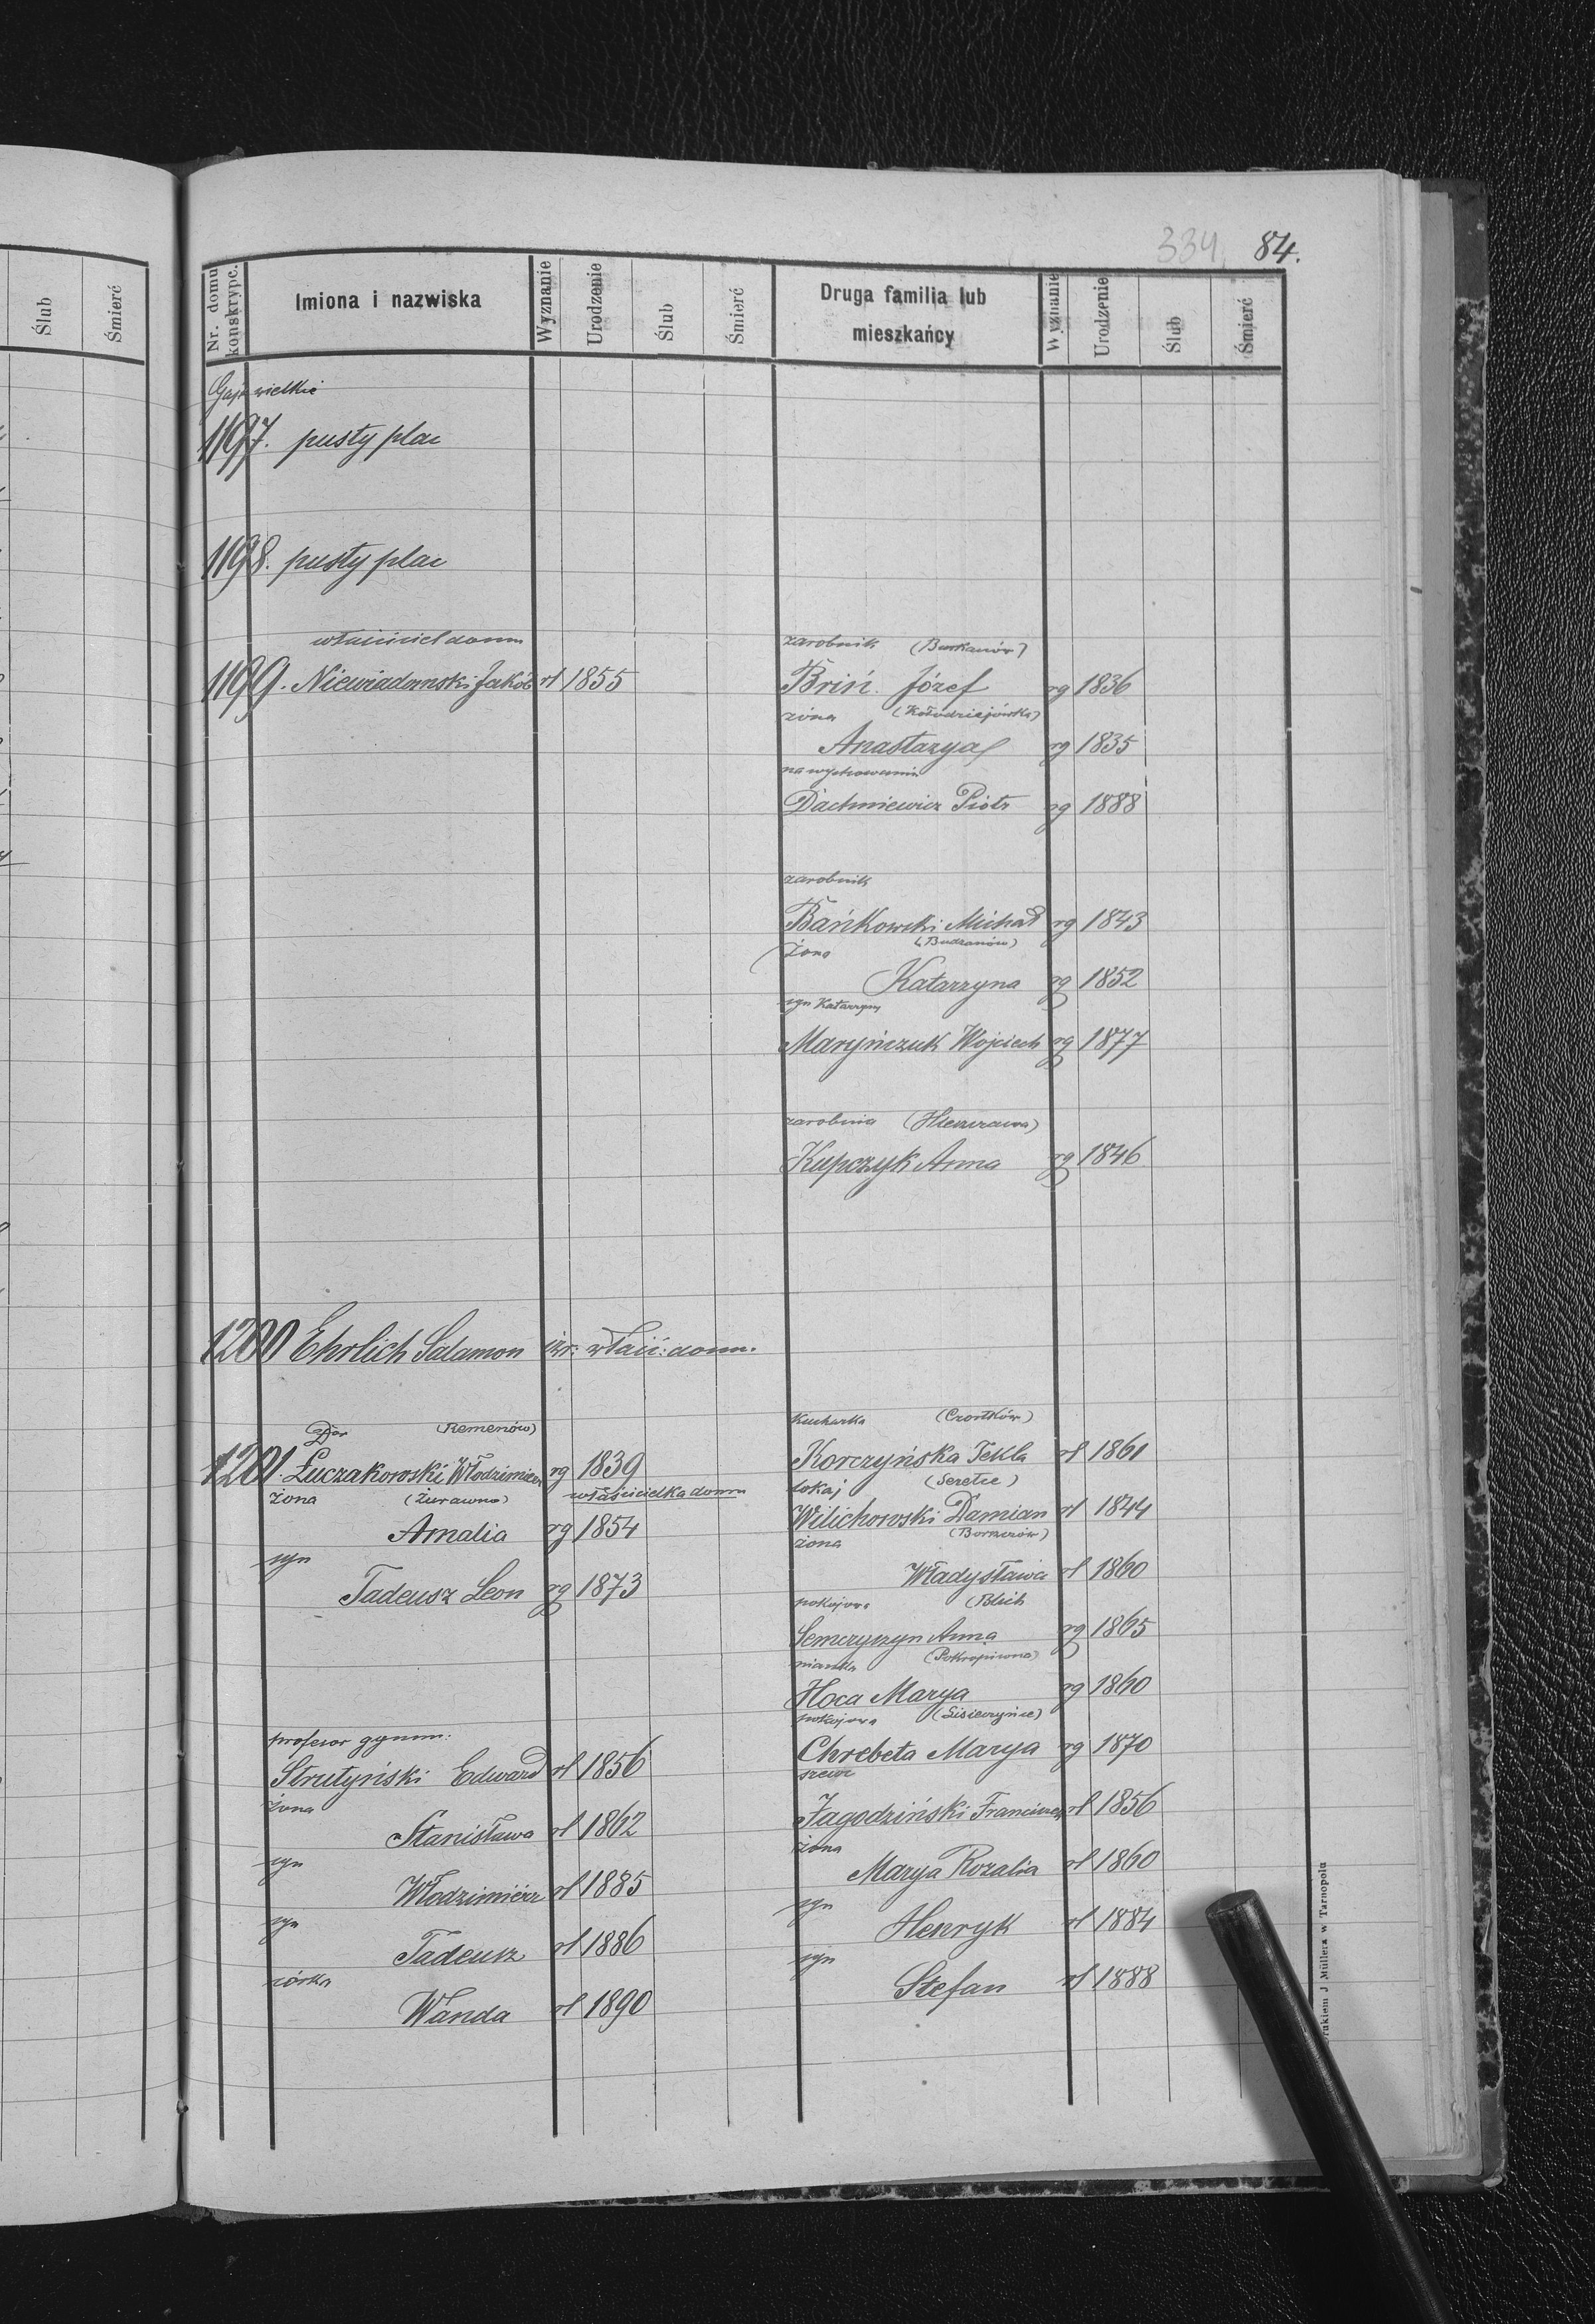 Ślub
Śmierć
334. 84.
Nr. domu konskrypc.
Imiona i nazwiska
Wyznanie
Urodzenie
Ślub
Śmierć
Druga familia lub mieszkańcy
Wyznanie
Urodzenie
Ślub
Śmierć
Gaje wielkie
1197. pusty plac
1198. pusty plac
właściciel domu
1199. Niewiadomski Jakób rł 1855
zarobnik (Burkanów)
Briń Józef rg 1836
żona (Kołodziejówka)
Anastazya rg 1835
na wychowaniu
Dachniewicz Piotr rg 1888
zarobnik
Bańkowski Michał rg 1843
żona (Budzanów)
Katarzyna rg 1852
syn Katarzyny
Maryńczuk Wojciech rg 1877
zarobnia
Kupczyk Anna rg 1846
1200 Ehrlich Salamon izr: właść: domu.
Dr (Remenów)
1201. Łuczakowski Włodzimierz rg 1839
żona (Żurawno) właścicielka domu
Amalia rg 1854
syn
Tadeusz Leon rg 1873
profesor gymn:
Strutyński Edward rł 1856
żona
Stanisława rł 1862
syn
Włodzimiérz rł 1885
syn
Tadeusz rł 1886
córka
Wanda rł 1890
Kucharka (Czortków)
Korczyńska Tekla rł 1861
lokaj (Seretce)
Wilichowski Damian rł 1844
żona
Władysława rł 1860
pokojowa (Blich
Semczyszyn Anna rg 1865
nianka (Pokropiwna)
Hoca Marya rg 1860
pokojowa (Lisieczyńce)
Chrebeta Marya rg 1870
szewc
Jagodziński Franciszek rł 1856
żona
Marya Rozalia rł 1860
syn
Henryk rł 1884
syn
Stefan rł 1888
Drukiem J Müllera w Tarnopolu